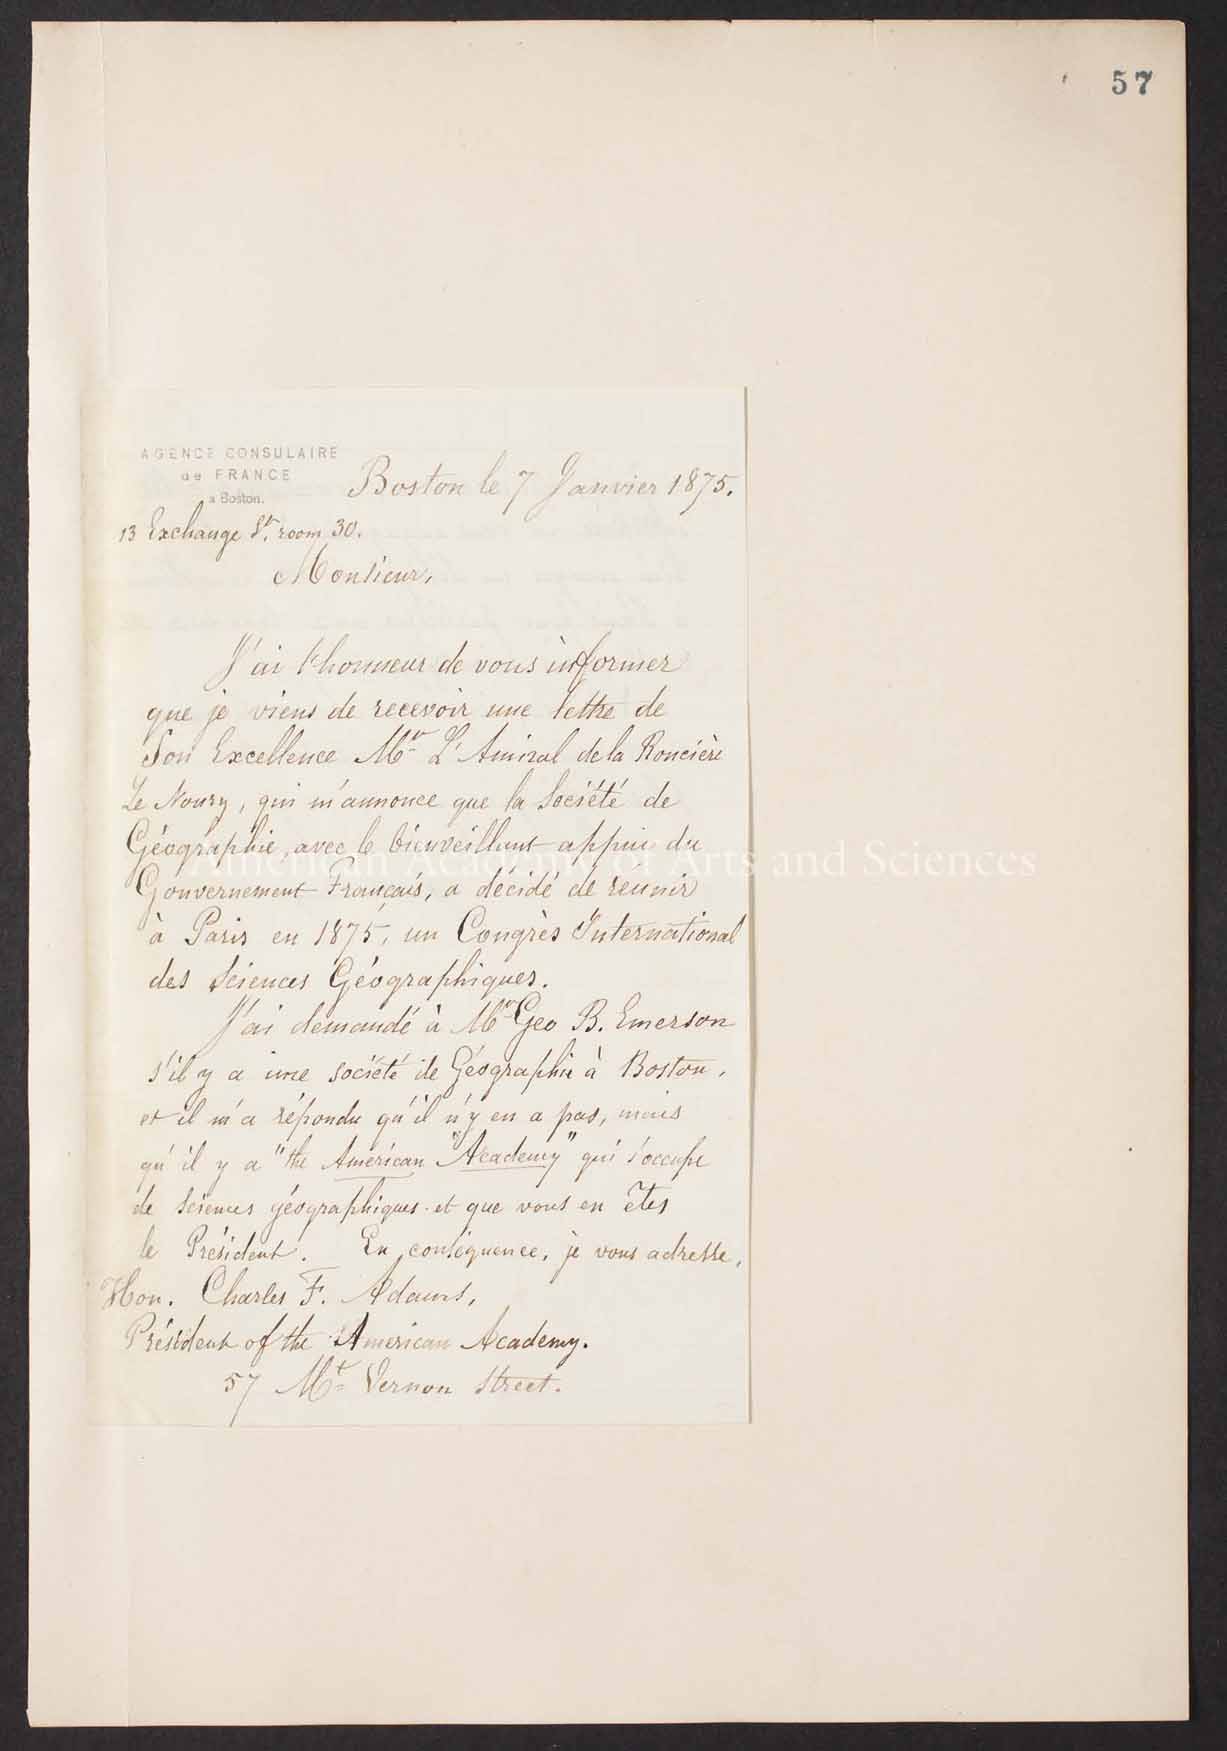 57
AGENCE CONSULAIRE
de FRANCE
a Boston.
Boston le 7 Janvier 1875.
13 Exchange St. room 30.
Monsieur,
J'ai l'honneur de vous informer
que je viens de recevoir une lettre de
Son Excellence Mr L'Amiral de la Roncière
Le Noury, qui m'annonce que la Société de
Géographie, avec le bienveillant appui du
Gouvernement Français, a décidé de réunir
à Paris en 1875, un Congrès International
des Sciences Géographiques.
J'ai demandé à Mr Geo B. Emerson
s'il y a une société de Géographie à Boston,
et il m'a répondu qu'il n'y en a pas, mais
qu'il y a "the American "Academy" qui s'occupe
de Sciences géographiques et que vous en êtes
le Président. En conséquence, je vous adresse,
Hon. Charles F. Adams,
Président of the American Academy.
57 Mt Vernon Street.
American Academy of Arts and Sciences